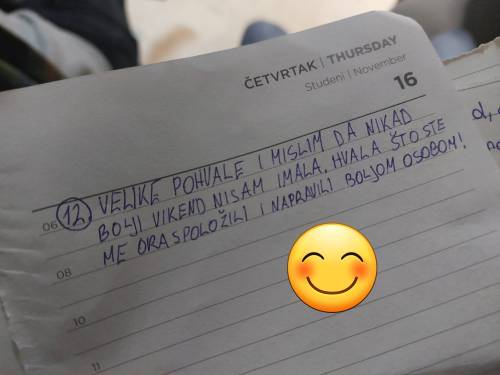 ČETVRTAK | THURSDAY
Studeni | November
16
06 12. VELIKE POHVALE I MISLIM DA NIKAD
BOLJI VIKEND NISAM IMALA. HVALA ŠTO STE
ME ORASPOLOŽILI I NAPRAVILI BOLJOM OSOBOM!
08
10
11